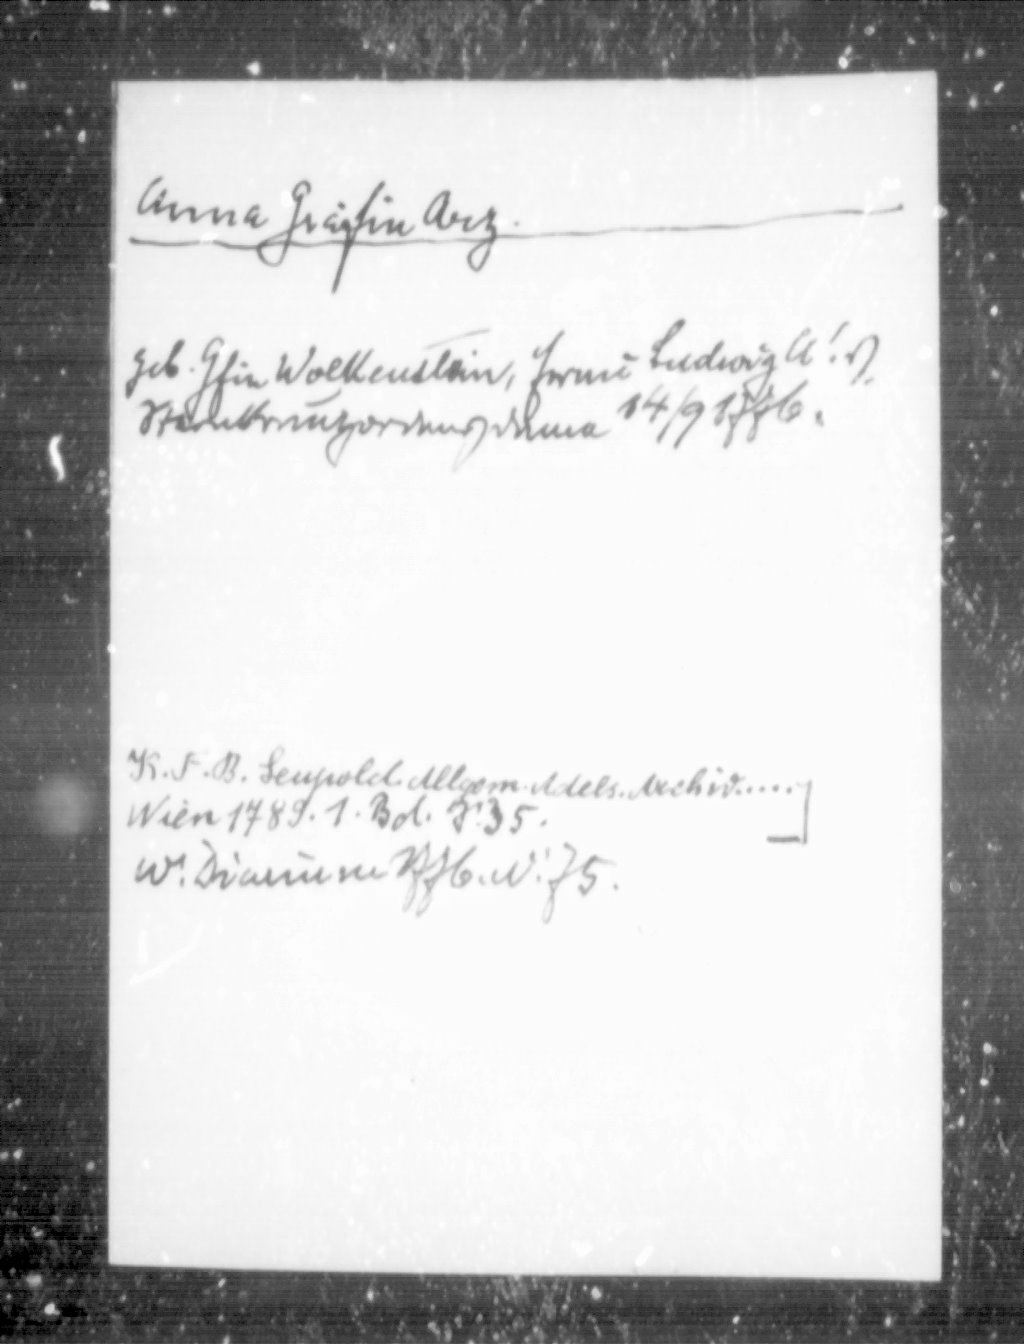 Anna Gräfin Arz.
geb. Gfin Wolkenstein, Frau Ludwig A!
Sternkreuzordensdame 14/9 1776.
K. F. B. Leupold. Allgem. Adels. Archiv....
Wien 1789. 1. Bd. S. 35.
W. Diarium 1776. N! 75.